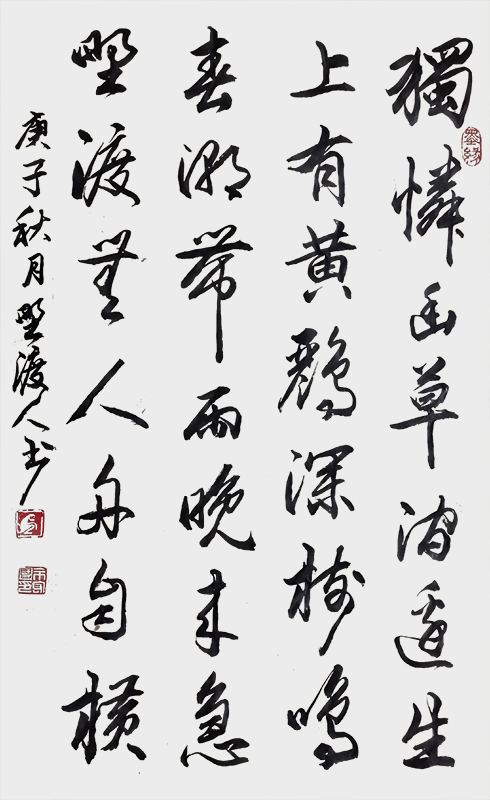 獨憐幽草澗邊生
上有黄鸝深樹鳴
春潮帶雨晚来急
野渡無人舟自横
庚子秋月野渡人书
墨缘